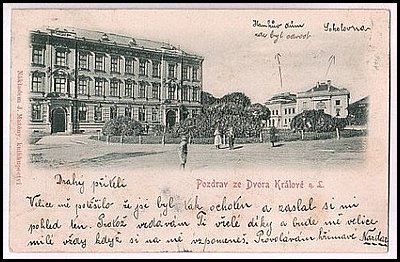 Hankův dům
za byl odvot
Sokolovna
Nákladem J. Mařany, knihkupectví
Pozdrav ze Dvora Králové n. L.
Drahý příteli
Velice mě potěšilo že jsi byl tak ochoten a zaslal si mi
pohled ten. Pročež vzdávám Ti vřelé díky a bude mě velice
milé vždy když si na mě vzpomeneš. Provolávám hřímavé Nazdar